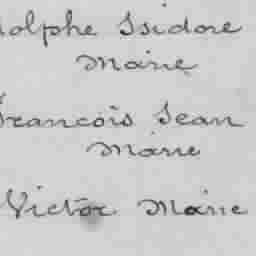 dolphe Isidore
Marie
François Jean
Marie
Victor Marie